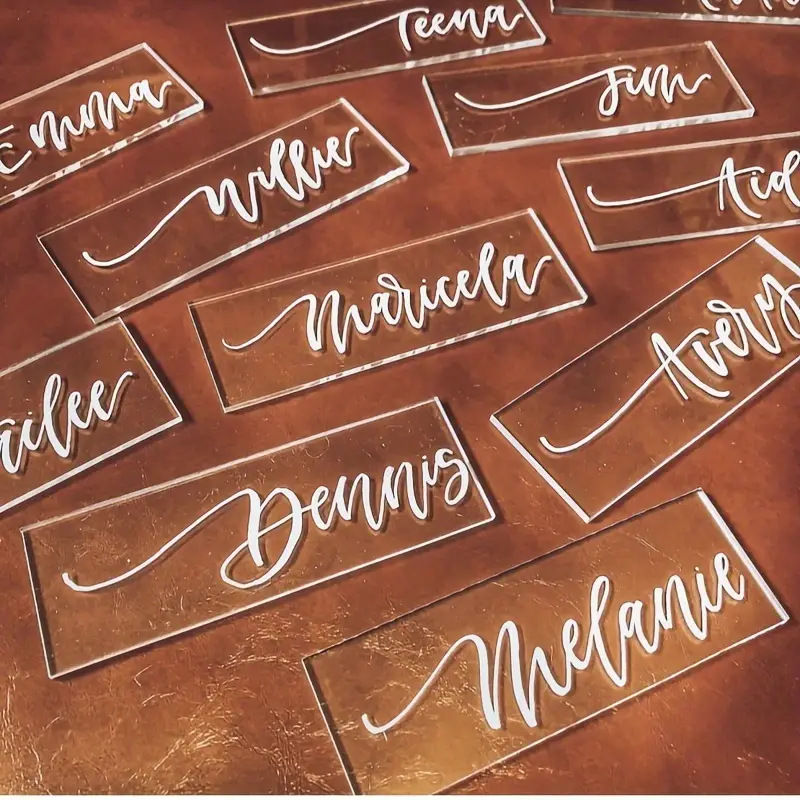 Teena
Jim
Emma
Willie
Aid
Maricela
Avery
ailee
Dennis
Melanie